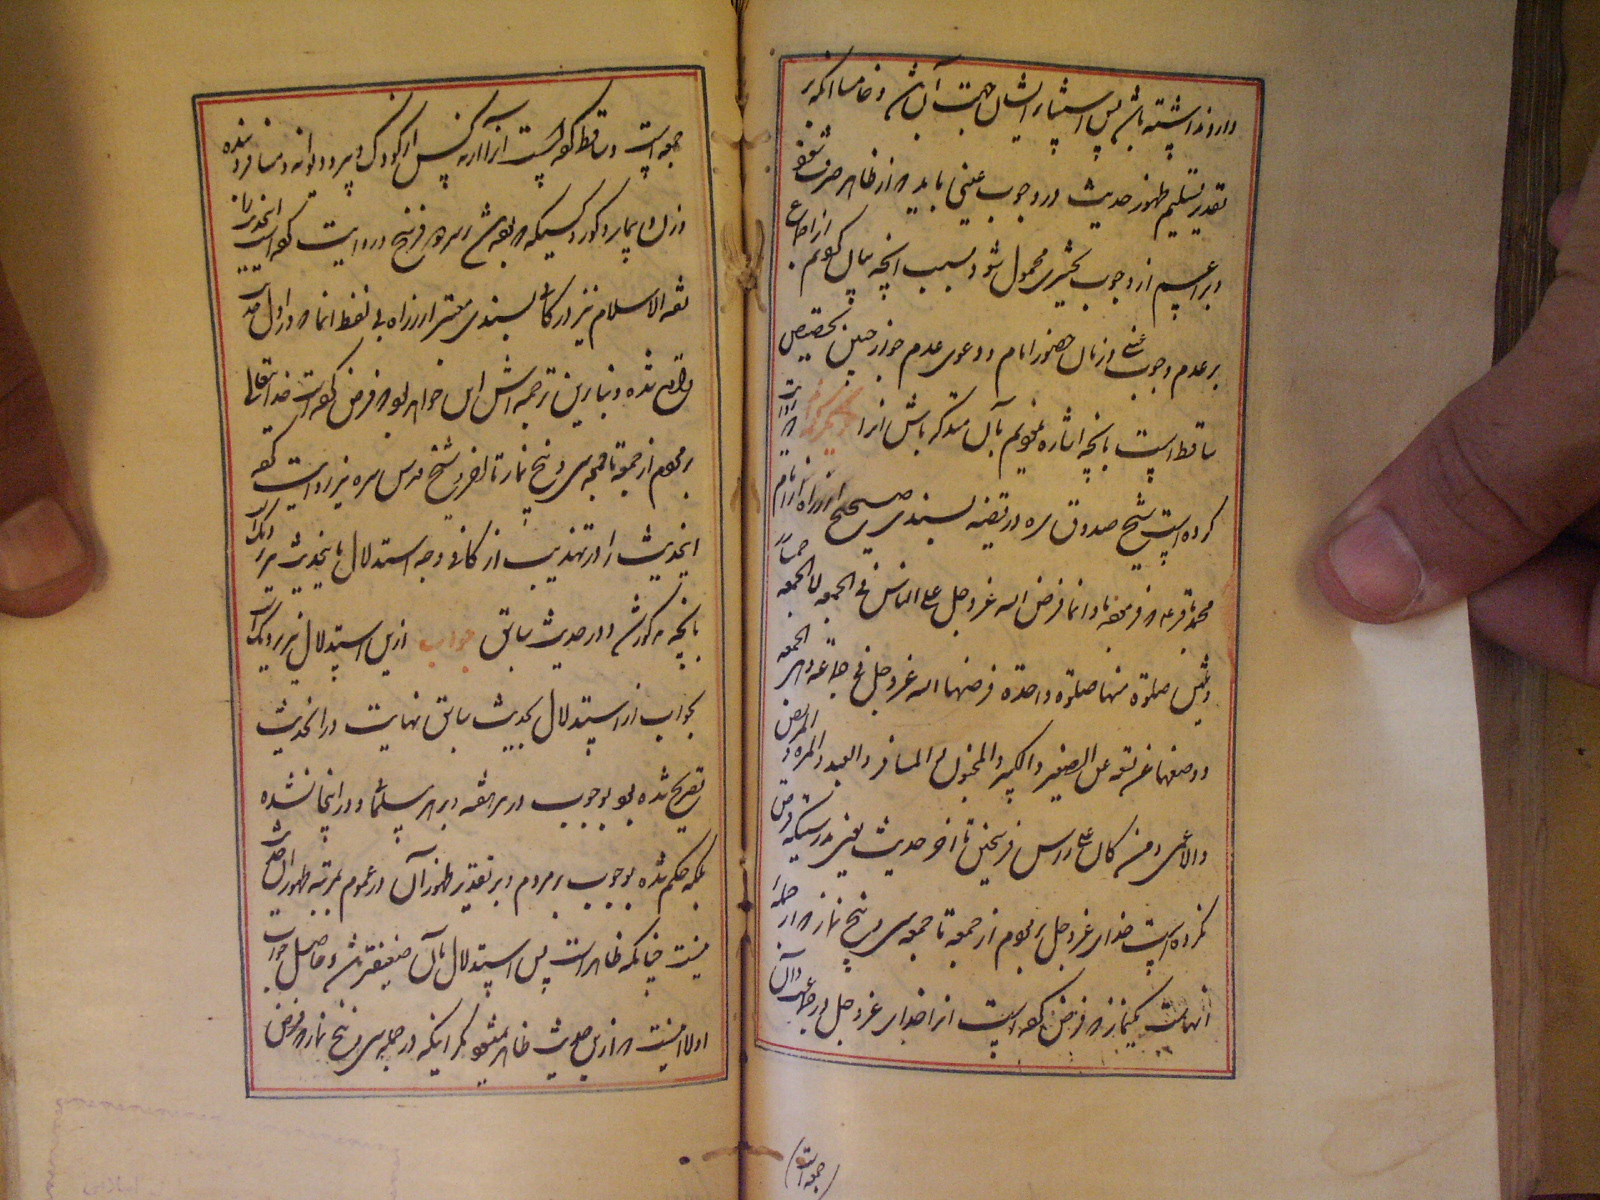 دارو نداشته باشد پس استثناء ایشان جهت آن باشد و خامسا انکه بر
تقدیر تسلیم ظهور حدیث در وجوب عینی باید که از ظاهر صرف شود
و بر اعم از وجوب تخییری محمول شود بسبب انچه بیان کردیم از اجماع
بر عدم وجوب عینی در زمان حضور امام و دعوی عدم جواز چنین تخصیص
ساقط است بانچه اشاره نمودیم بآن متذکر باش انرا روایت
کرده است شیخ صدوق ره در فقیه بسندی صحیح از زراره از امام
محمد باقر ع که فرمود انما فرض الله عز و جل علی الناس فی الجمعه الی الجمعه خمسا
و ثلثین صلوة منها صلوة واحدة فرضها الله عز و جل فی جماعة و هی الجمعه
و وضعها عن تسعة عن الصغیر و الکبیر و المجنون و المسافر و العبد و المرءه و المریض
و الاعمی و من کان علی راس فرسخین تا اخر حدیث یعنی بدرستیکه فرض
کرده است خدای عز و جل بر مردم از جمعه تا جمعه سی و پنج نماز که از جمله
انهاست یکنماز که فرض کرده است انرا خدای عز و جل در جماعت و آن
(جمعه است)
جمعه است و ساقط کرده است انرا از نه کس از کودک و پیر و دیوانه و مسافر و بنده
و زن و بیمار و کور و کسیکه بوده باشد بر سر دو فرسخ و روایت کرده است این حدیث را
ثقه الاسلام نیز در کافی بسندی معتبر از زراره بی لفظ انما که در اول حدیث
واقع شده و بنابرین ترجمه اش این خواهد بود که فرض کرده است خدایتعالی
بر مردم از جمعه تا جمعه سی و پنج نماز تا اخر و شیخ قدس سره نیز روایت کرده
اینحدیث را در تهذیب از کافی و وجه استدلال باینحدیث نزدیک
بانچه مذکور شد در حدیث سابق جواب ازین استدلال نیز نزدیک است
بجواب از استدلال بحدیث سابق نهایت در انحدیث
تصریح شده بود بوجوب در هر هفته و بر هر مسلمان و در اینجا نشده
بلکه حکم شده بوجوب بر مردم و بر تقدیر ظهور آن در عموم بمرتبه ظهور ان حدیث
نیست چنانکه ظاهر است پس استدلال بآن ضعیفتر باشد و حاصل جواب
اولا اینست که ازین حدیث ظاهر نمیشود مگر اینکه در جمله سی و پنج نماز که فرض